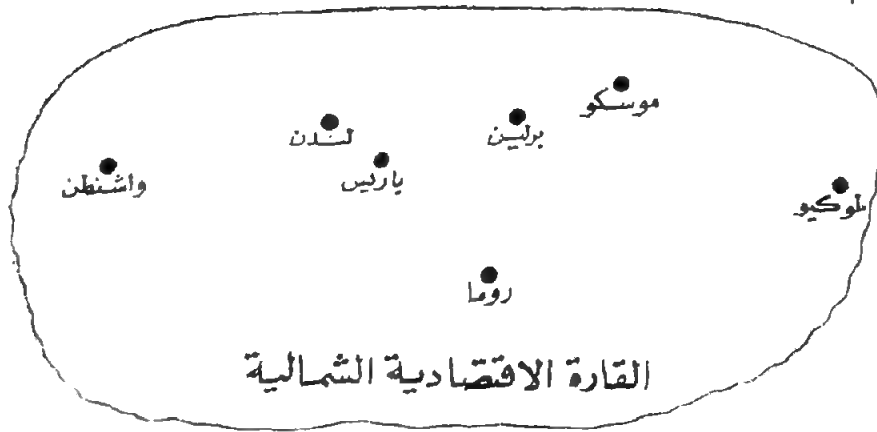 موسكو
برلين
لندن
باريس
واشنطن
طوكيو
روما
القارة الاقتصادية الشمالية